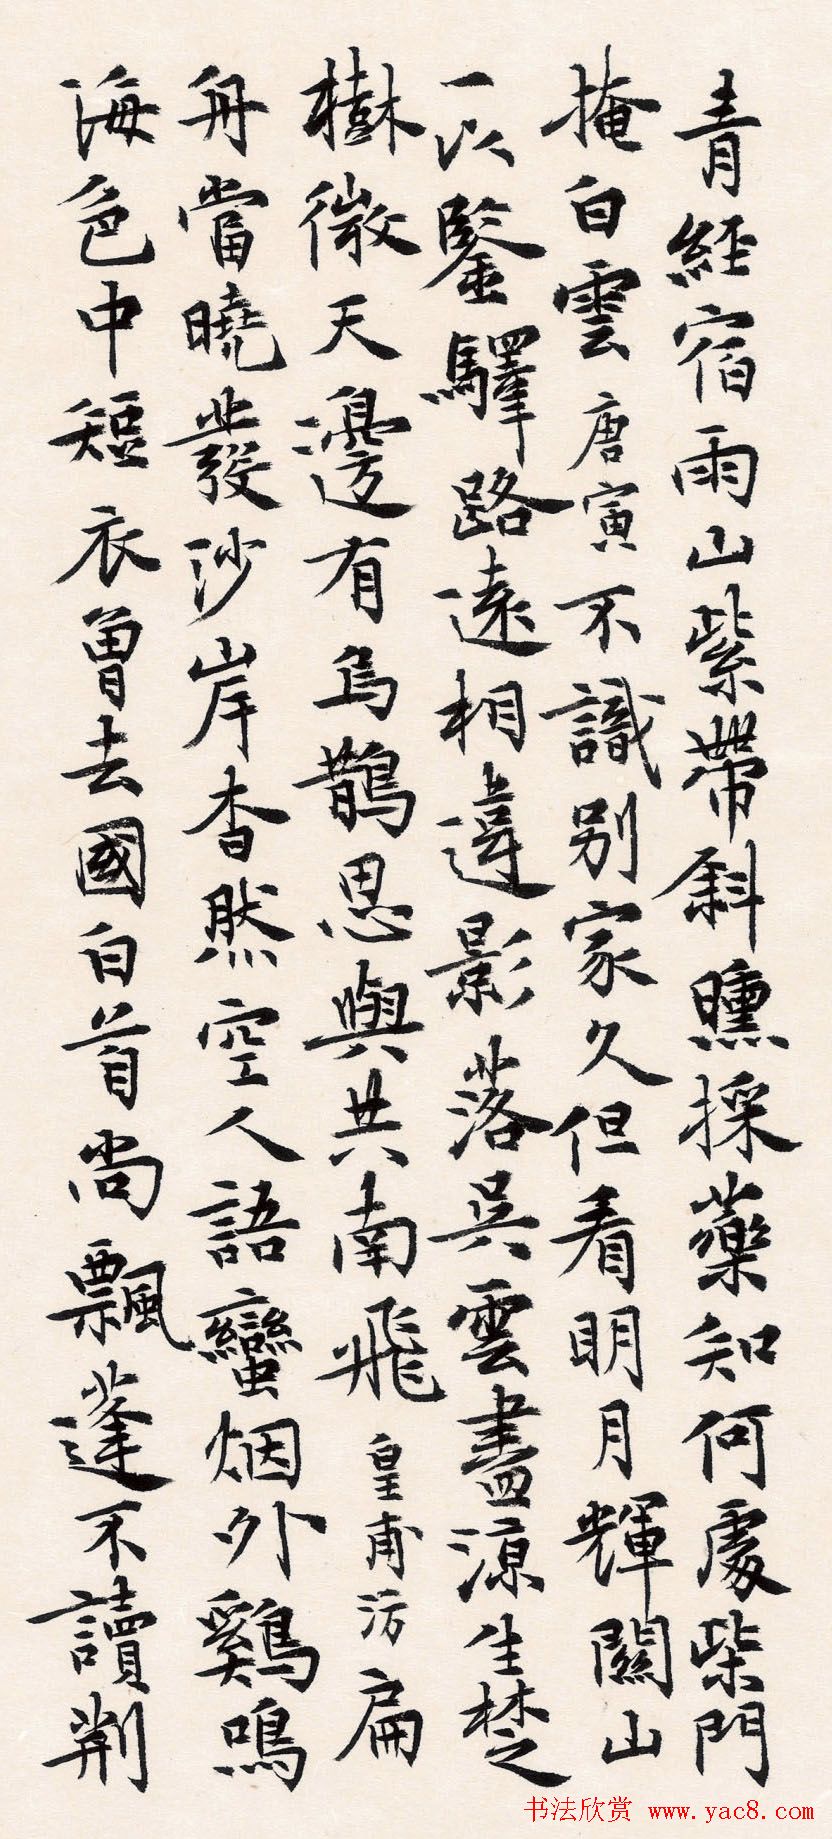 青經宿雨山紫帶斜曛採藥知何處柴門
掩白雲唐寅不識別家久但看明月輝關山
一以鑒驛路遠相違影落吳雲盡涼生楚
樹微天邊有烏鵲思與共南飛皇甫汸扁
舟當曉發沙岸杳然空人語蠻烟外鷄鳴
海色中短衣曾去國白首尚飄蓬不讀荆
书法欣赏 www.yac8.com